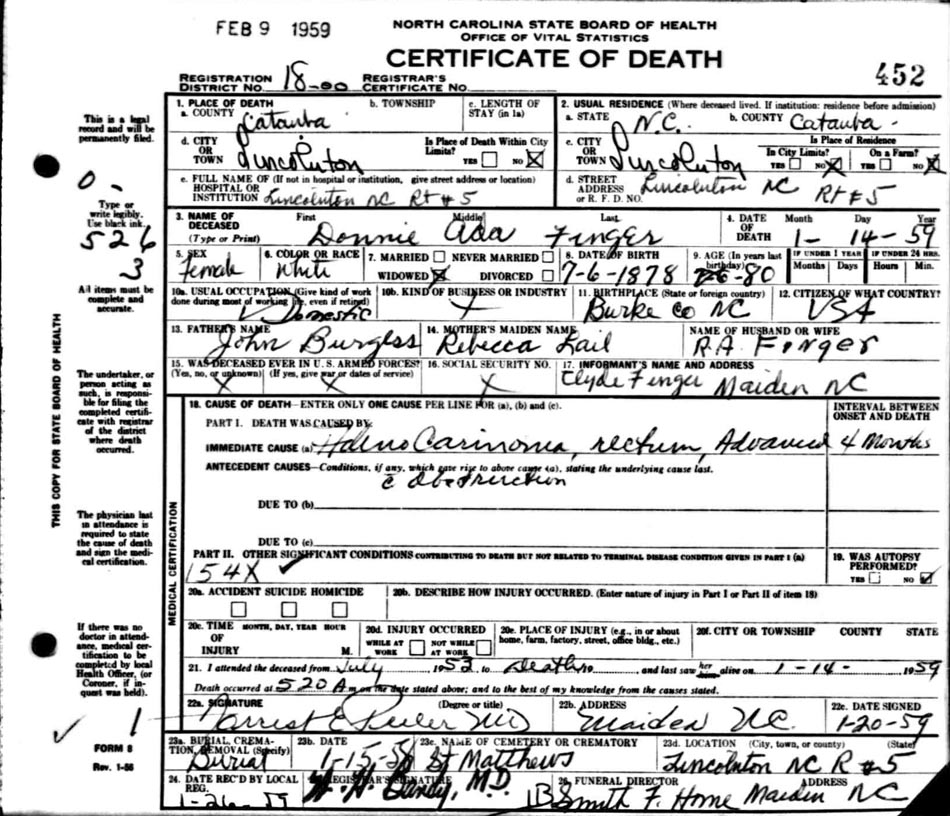 FEB 9 1959
NORTH CAROLINA STATE BOARD OF HEALTH
OFFICE OF VITAL STATISTICS
CERTIFICATE OF DEATH
452
REGISTRATION DISTRICT NO. 18-00 REGISTRAR'S CERTIFICATE NO.
1. PLACE OF DEATH a. COUNTY Catawba b. TOWNSHIP c. LENGTH OF STAY (in 1a)
2. USUAL RESIDENCE (Where deceased lived. If institution: residence before admission) a. STATE N.C. b. COUNTY Catawba
d. CITY OR TOWN Lincolnton Is Place of Death Within City Limits? YES NO X
c. CITY OR TOWN Lincolnton Is Place of Residence In City Limits? YES NO X On a Farm? YES NO X
e. FULL NAME OF (If not in hospital or institution, give street address or location) HOSPITAL OR INSTITUTION Lincolnton NC Rt #5
d. STREET ADDRESS OR R. F. D. NO. Lincolnton NC Rt #5
3. NAME OF DECEASED (Type or Print) First Middle Last Donnie Ada Finger
4. DATE OF DEATH Month Day Year 1- 14- 59
5. SEX Female 6. COLOR OR RACE White 7. MARRIED NEVER MARRIED WIDOWED X DIVORCED
8. DATE OF BIRTH 7-6-1878 9. AGE (In years last birthday) 80 IF UNDER 1 YEAR Months Days IF UNDER 24 HRS. Hours Min.
10a. USUAL OCCUPATION (Give kind of work done during most of working life, even if retired) Domestic
10b. KIND OF BUSINESS OR INDUSTRY X
11. BIRTHPLACE (State or foreign country) Burke co NC 12. CITIZEN OF WHAT COUNTRY? USA
13. FATHER'S NAME John Burgess 14. MOTHER'S MAIDEN NAME Rebecca Lail NAME OF HUSBAND OR WIFE R.A. Finger
15. WAS DECEASED EVER IN U. S. ARMED FORCES? (Yes, no, or unknown) (If yes, give war or dates of service) X X
16. SOCIAL SECURITY NO. X
17. INFORMANT'S NAME AND ADDRESS Clyde Finger Maiden NC
18. CAUSE OF DEATH—ENTER ONLY ONE CAUSE PER LINE FOR (a), (b) and (c).
INTERVAL BETWEEN ONSET AND DEATH
PART I. DEATH WAS CAUSED BY:
IMMEDIATE CAUSE (a) Adeno Carinoma, rectum, Advanced 4 Months
ANTECEDENT CAUSES—Conditions, if any, which gave rise to above cause (a), stating the underlying cause last.
c̄ obstruction
DUE TO (b)
DUE TO (c)
PART II. OTHER SIGNIFICANT CONDITIONS CONTRIBUTING TO DEATH BUT NOT RELATED TO TERMINAL DISEASE CONDITION GIVEN IN PART I (a)
154X
19. WAS AUTOPSY PERFORMED? YES NO ✓
20a. ACCIDENT SUICIDE HOMICIDE 20b. DESCRIBE HOW INJURY OCCURRED. (Enter nature of injury in Part I or Part II of item 18)
20c. TIME OF INJURY MONTH, DAY, YEAR HOUR M. 20d. INJURY OCCURRED WHILE AT WORK NOT WHILE AT WORK
20e. PLACE OF INJURY (e.g., in or about home, farm, factory, street, office bldg., etc.) 20f. CITY OR TOWNSHIP COUNTY STATE
21. I attended the deceased from July 1952 to Death and last saw her alive on 1-14- 1959
Death occurred at 520 A m on the date stated above; and to the best of my knowledge from the causes stated.
22a. SIGNATURE (Degree or title) MD
22b. ADDRESS Maiden N.C. 22c. DATE SIGNED 1-20-59
23a. BURIAL, CREMATION, REMOVAL (Specify) Burial 23b. DATE 23c. NAME OF CEMETERY OR CREMATORY St Matthews
23d. LOCATION (City, town, or county) (State) Lincolnton NC R #5
24. DATE REC'D BY LOCAL REG. 1-26-59 REGISTRAR'S SIGNATURE M.D.
25. FUNERAL DIRECTOR ADDRESS Smith F. Home Maiden NC
MEDICAL CERTIFICATION
THIS COPY FOR STATE BOARD OF HEALTH
This is a legal record and will be permanently filed.
0-
Type or write legibly. Use black ink.
526
3
All items must be complete and accurate.
The undertaker, or person acting as such, is responsible for filing the completed certificate with registrar of the district where death occurred.
The physician last in attendance is required to state the cause of death and sign the medical certification.
If there was no doctor in attendance, medical certification to be completed by local Health Officer, (or Coroner, if inquest was held).
1
FORM 8
Rev. 1-56